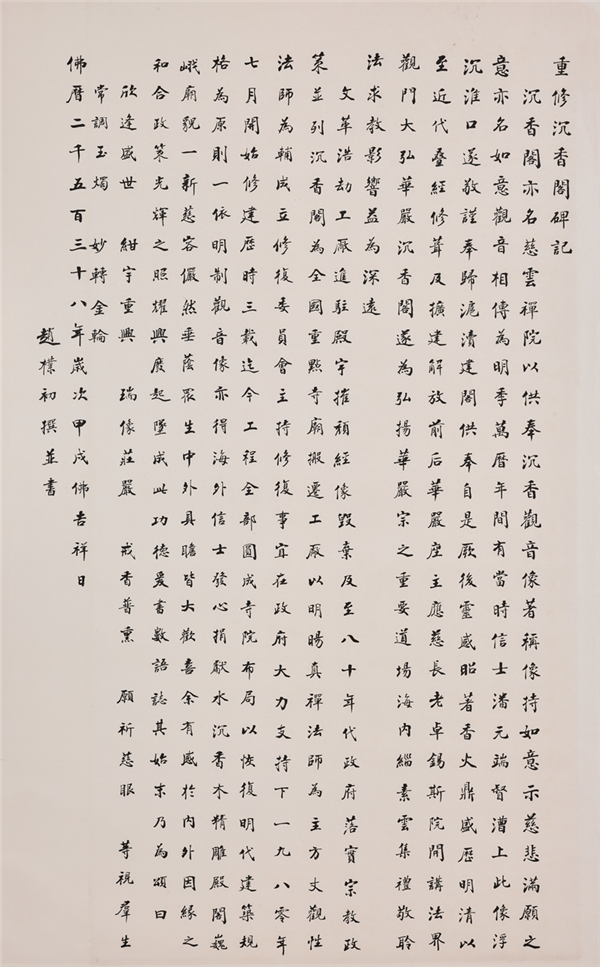 重修沉香閣碑記
沉香閣亦名慈雲禪院以供奉沉香觀音像著稱像持如意示慈悲滿願之
意亦名如意觀音相傳為明季萬曆年間有當時信士潘元端督漕上此像浮
沉淮口遂敬謹奉歸滬瀆建閣供奉自是厥後靈感昭著香火鼎盛歷明清以
至近代疊經修葺及擴建解放前后華嚴座主應慈長老卓錫斯院開講法界
觀門大弘華嚴沉香閣遂為弘揚華嚴宗之重要道場海內緇素雲集禮敬聆
法求教影響益為深遠
文革浩劫工厰進駐殿宇摧頹經像毀棄及至八十年代政府落實宗教政
策並列沉香閣為全國重點寺廟搬遷工厰以明暘真禪法師為主方丈觀性
法師為輔成立修復委員會主持修復事宜在政府大力支持下一九八零年
七月開始修建歷時三載迄今工程全部圓成寺院布局以恢復明代建築規
格為原則一依明制觀音像亦得海外信士發心捐獻水沉香木精雕殿閣巍
峨廟貌一新慈容儼然垂蔭眾生中外具瞻皆大歡喜余有感於內外因緣之
和合政策光輝之照耀興廢起墜成此功德爰書數語誌其始末乃為頌曰
欣逢盛世 紺宇重興 瑞像莊嚴 戒香普熏 願祈慈眼 等視羣生
常調玉燭 妙轉金輪
佛曆二千五百三十八年歲次甲戌佛吉祥日
趙樸初撰並書